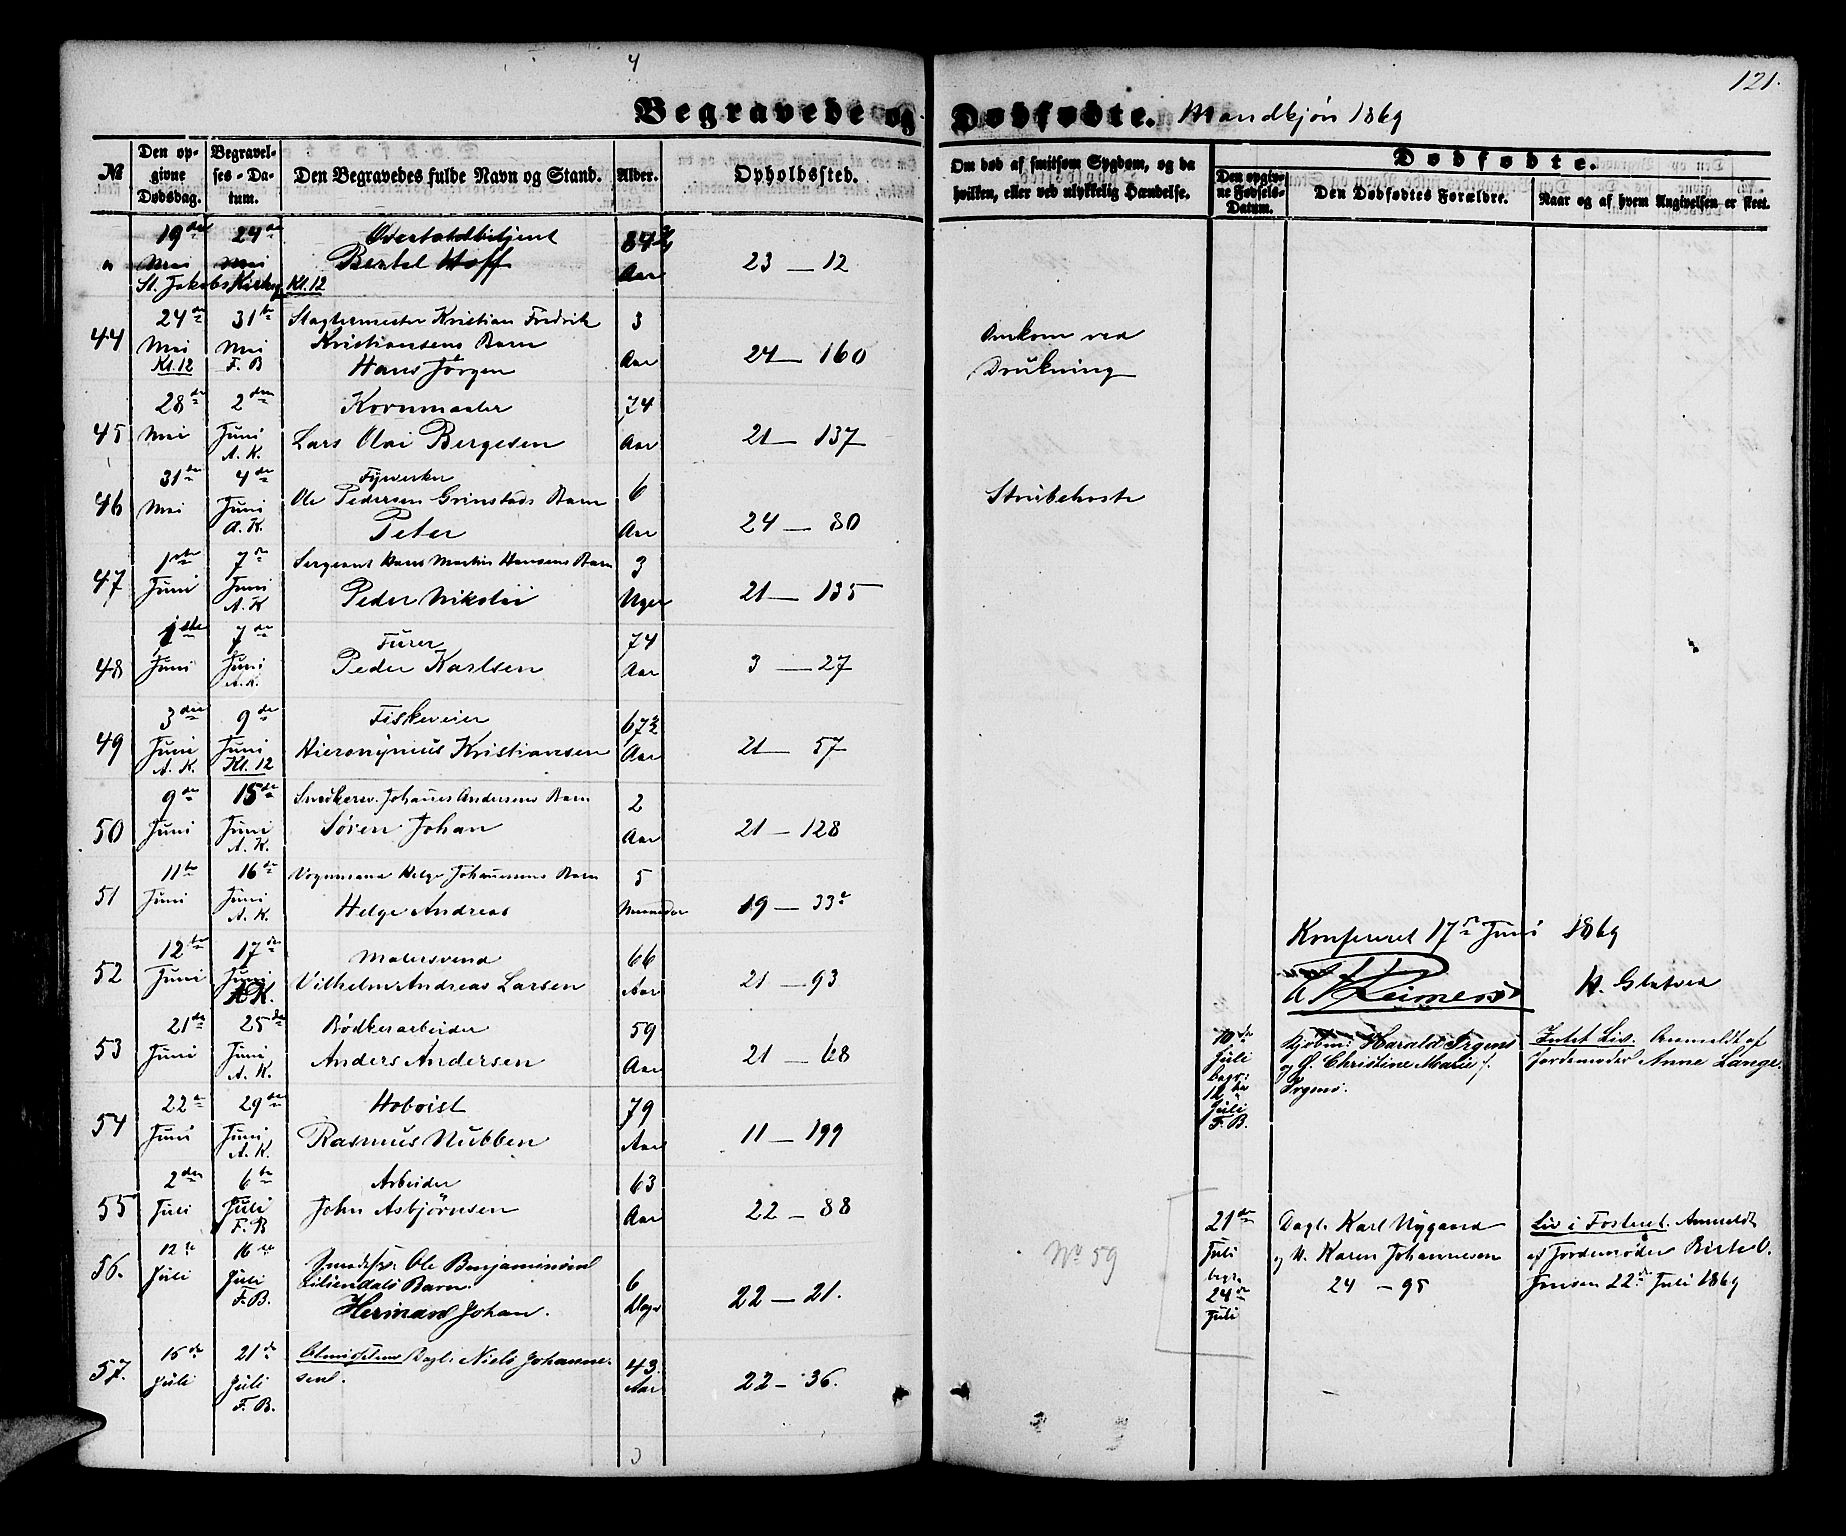 4
121.
Begravede og Dødfødte. Mandkjøn 1869
№
Den opgivne Dødsdag.
Begravelses-Datum.
Den Begravedes fulde Navn og Stand.
Alder.
Opholdssted.
Om død af smitsom Sygdom, og da hvilken, eller ved ulykkelig Hændelse.
Dødfødte.
Den opgivne Fødsels-Datum.
Den Dødfødtes Forældre.
Naar og af hvem Angivelsen er skeet.
19de Mai 24de Mai
Bertel Hoff
Aar 23 — 12
St. Jakobs Kirkeg Kl. 12
44 24de Mai Kl. 12 31te Mai F. B
Slagtermester Kristian Fredrik
Kristiansens Barn
Hans Jørgen
3 Aar 24 — 160
Omkom ved
Drukning
45 28de Mai 2den Juni A. K.
Kornmaaler
Lars Olai Bergesen
74 Aar 21 — 137
46 31te Mai 4de Juni A. K.
Fyrverker
Ole Pedersen Grinstads Barn
Peter
6 Aar 24 — 80
Strubehoste
47 1ste Juni 7de Juni A. K
Sergeant Hans Martin Hansens Barn
Peder Nikolai
3 Uger 21 — 135
48 1ste Juni 7de Juni A. K.
Furer
Peder Karlsen
74 Aar 3 — 27
49 3die Juni A. K. 9de Juni Kl. 12
Fiskeveier
Hieronymus Kristiansen
67½ Aar 21 — 57
50 9de Juni 15de Juni A. K.
Snedkersv. Johannes Andersens Barn
Søren Johan
2 Aar 21 — 128
51 11te Juni 16de Juni A. K.
Vognmand Helge Johannesens Barn
Helge Andreas
5 Maaneder 19 — 33a
52 12te Juni 17de Juni A. K.
Malersvend
Vilhelm Andreas Larsen
66 Aar 21 — 93
Konfereret 17de Juni 1869
Reimers
K. Glatved
53 21de Juni 25de Juni A. K.
Bødkerarbeider
Anders Andersen
59 Aar 21 — 68
10de Juli begr: 12te Juli F. B.
Kjøbm: Harald Irgens
og H. Christine Marie f.
Irgens.
Intet Liv. Anmeldt af
Jordemoder Anne Lange.
54 22de Juni 29de Juni A. K.
Hoboist
Rasmus Nubben
79 Aar 11 — 199
55 2den Juli 6te Juli F. B
Arbeider
John Asbjørnsen
63 Aar 22 — 88
21de Juli begr. 24de Juli
Dagl. Karl Nygaard
og H. Karen Johannesen
24 — 95
Liv i Fosteret. Anmeldt
af Jordemoder Birte O.
Jensen 22de Juli 1869
56. 12te Juli 16de Juli F. B.
Ole Benjaminsen
Liliendals Barn.
Herman Johan.
6 Dage 22 — 21.
No 59
57. 15de Juli 21de Juli F. B.
Almislem Dagl: Niels Johannessen.
43. Aar 22 — 36.